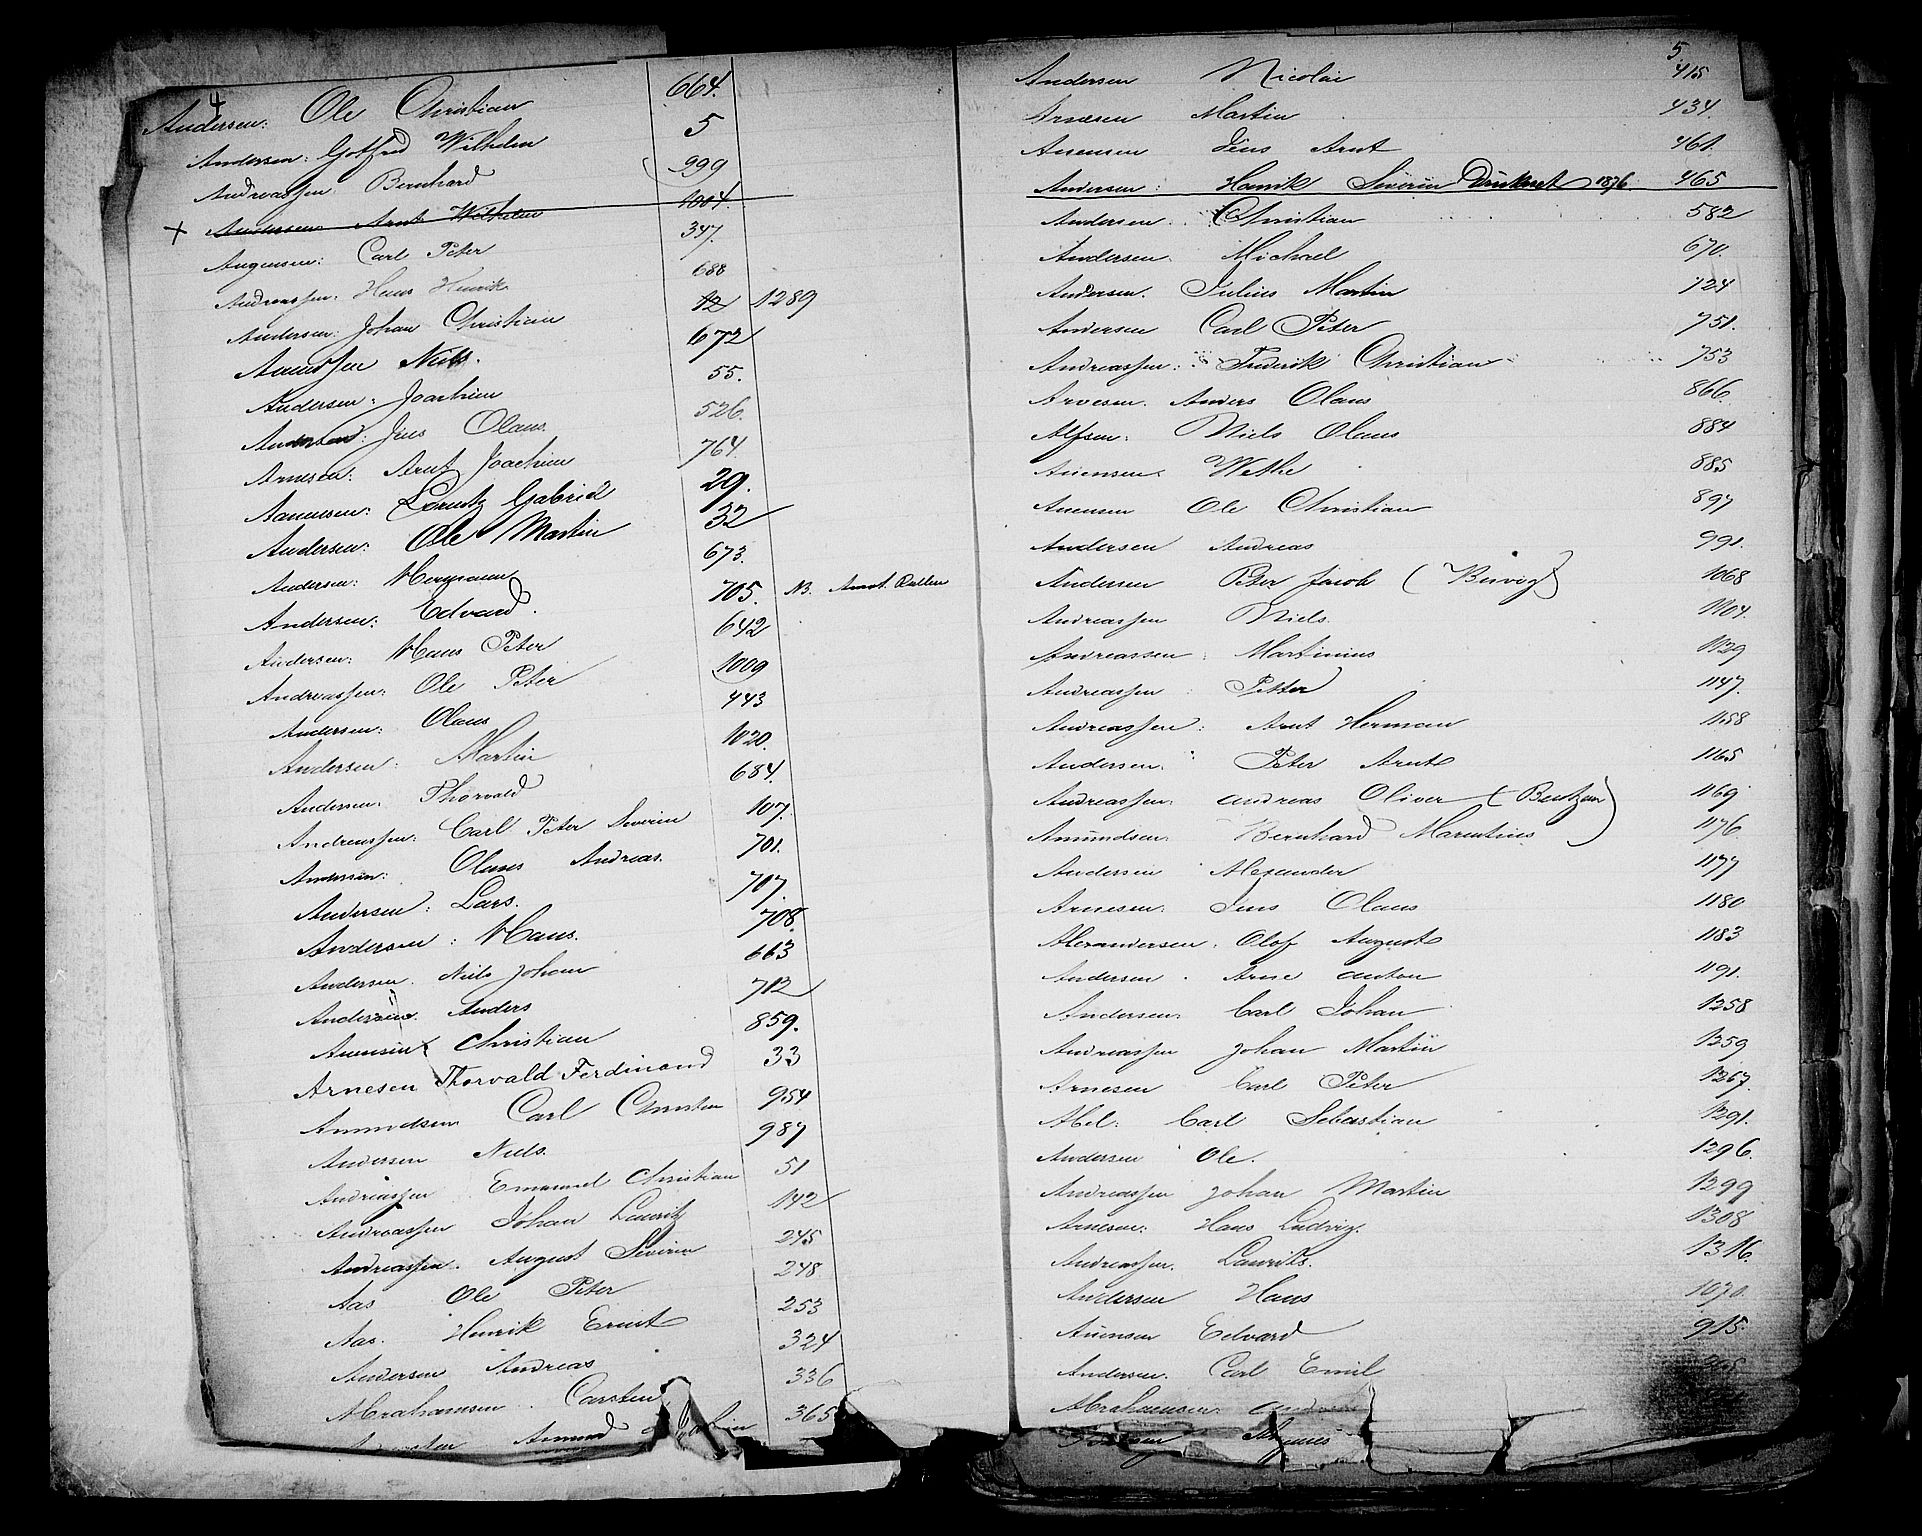 4
Andersen: Ole Christian 664.
Andersen: Gotfred Wilhelm 5
Andreassen Bernhard 999
+ Andersen Arnt Wilhelm 1004.
Carl Peter 347.
Andreassen: Hans Henrik 688
Andersen: Johan Christian 12 1289
Niels. 672
Andersen: Joachim 55.
Jens Olaus. 526.
Arnesen: Arnt Joachim 764.
Lorentz Gabriel 29.
Andersen: Ole Martin 32
Andersen: Hermann 673.
Andersen: Edvard. 705. NB. Annot. Rullen
Andersen: Hans Peter 642
Andreassen: Ole Peter 1009
Andersen: Olaus 443
Andersen: Martin 1020.
Andersen: Thorvald 684.
Andreassen: Carl Peter Severin 107.
Andersen: Olaus Andreas. 701.
Andersen: Lars. 707.
Andersen: Hans. 708.
Andersen. Niels Johan 663
Andersen. Anders 712
Christian 859.
Arnesen Thorvald Ferdinand 33
Amundsen Carl Christian 954
Andersen Niels. 987
Andreassen Emanuel Christian 51
Andreassen Johan Lauritz 142
Andreassen. August Severin 245
Aas Ole Peter 248
Aas. Henrik Ernst 253
Andersen Andreas 324
Abrahamsen. Carsten 336
Amund 365
5.
Andersen Nicolai 415
Arnesen Martin 434.
Jens Arnt 461.
Andersen: Henrik Severin Druknet 1876 465
Andersen. Christian 582
Andersen. Michael 670.
Andersen. Julius Martin 724
Andersen Carl Peter 751.
Andreassen: Frederik Christian 753
Arvesen. Anders Olaus 866
Alfsen: Niels Olaus 884
Wethe 885
Ole Christian 897
Andersen Andreas 991.
Andersen Peter Jacob (Birvig) 1068
Andreassen Niels. 1104.
Andreassen: Martinius 1129
Andreassen: Petter 1147.
Andreassen: Arnt Herman 1158
Andersen. Peter Arnt 1165
Andreassen: Andreas Oliver (Bentzen) 1169
Amundsen. Bernhard Marentius 1176
Andersen Alexander 1177
Arnesen: Jens Olaus 1180
Alexandersen. Olof August 1183
Andersen. Arne Anton 1191.
Andersen. Carl Johan 1258
Andreassen Johan Martin 1259
Arnesen Carl Peter 1267.
Abel: Carl Sebastian 1291.
Andersen Ole. 1296.
Andreassen Johan Martin 1299
Arnesen: Hans Ludvig. 1308
Andreassen. Laurits. 1316.
Andersen Hans 1070.
Edvard 915.
Andersen. Carl Emil
Abrahamsen.